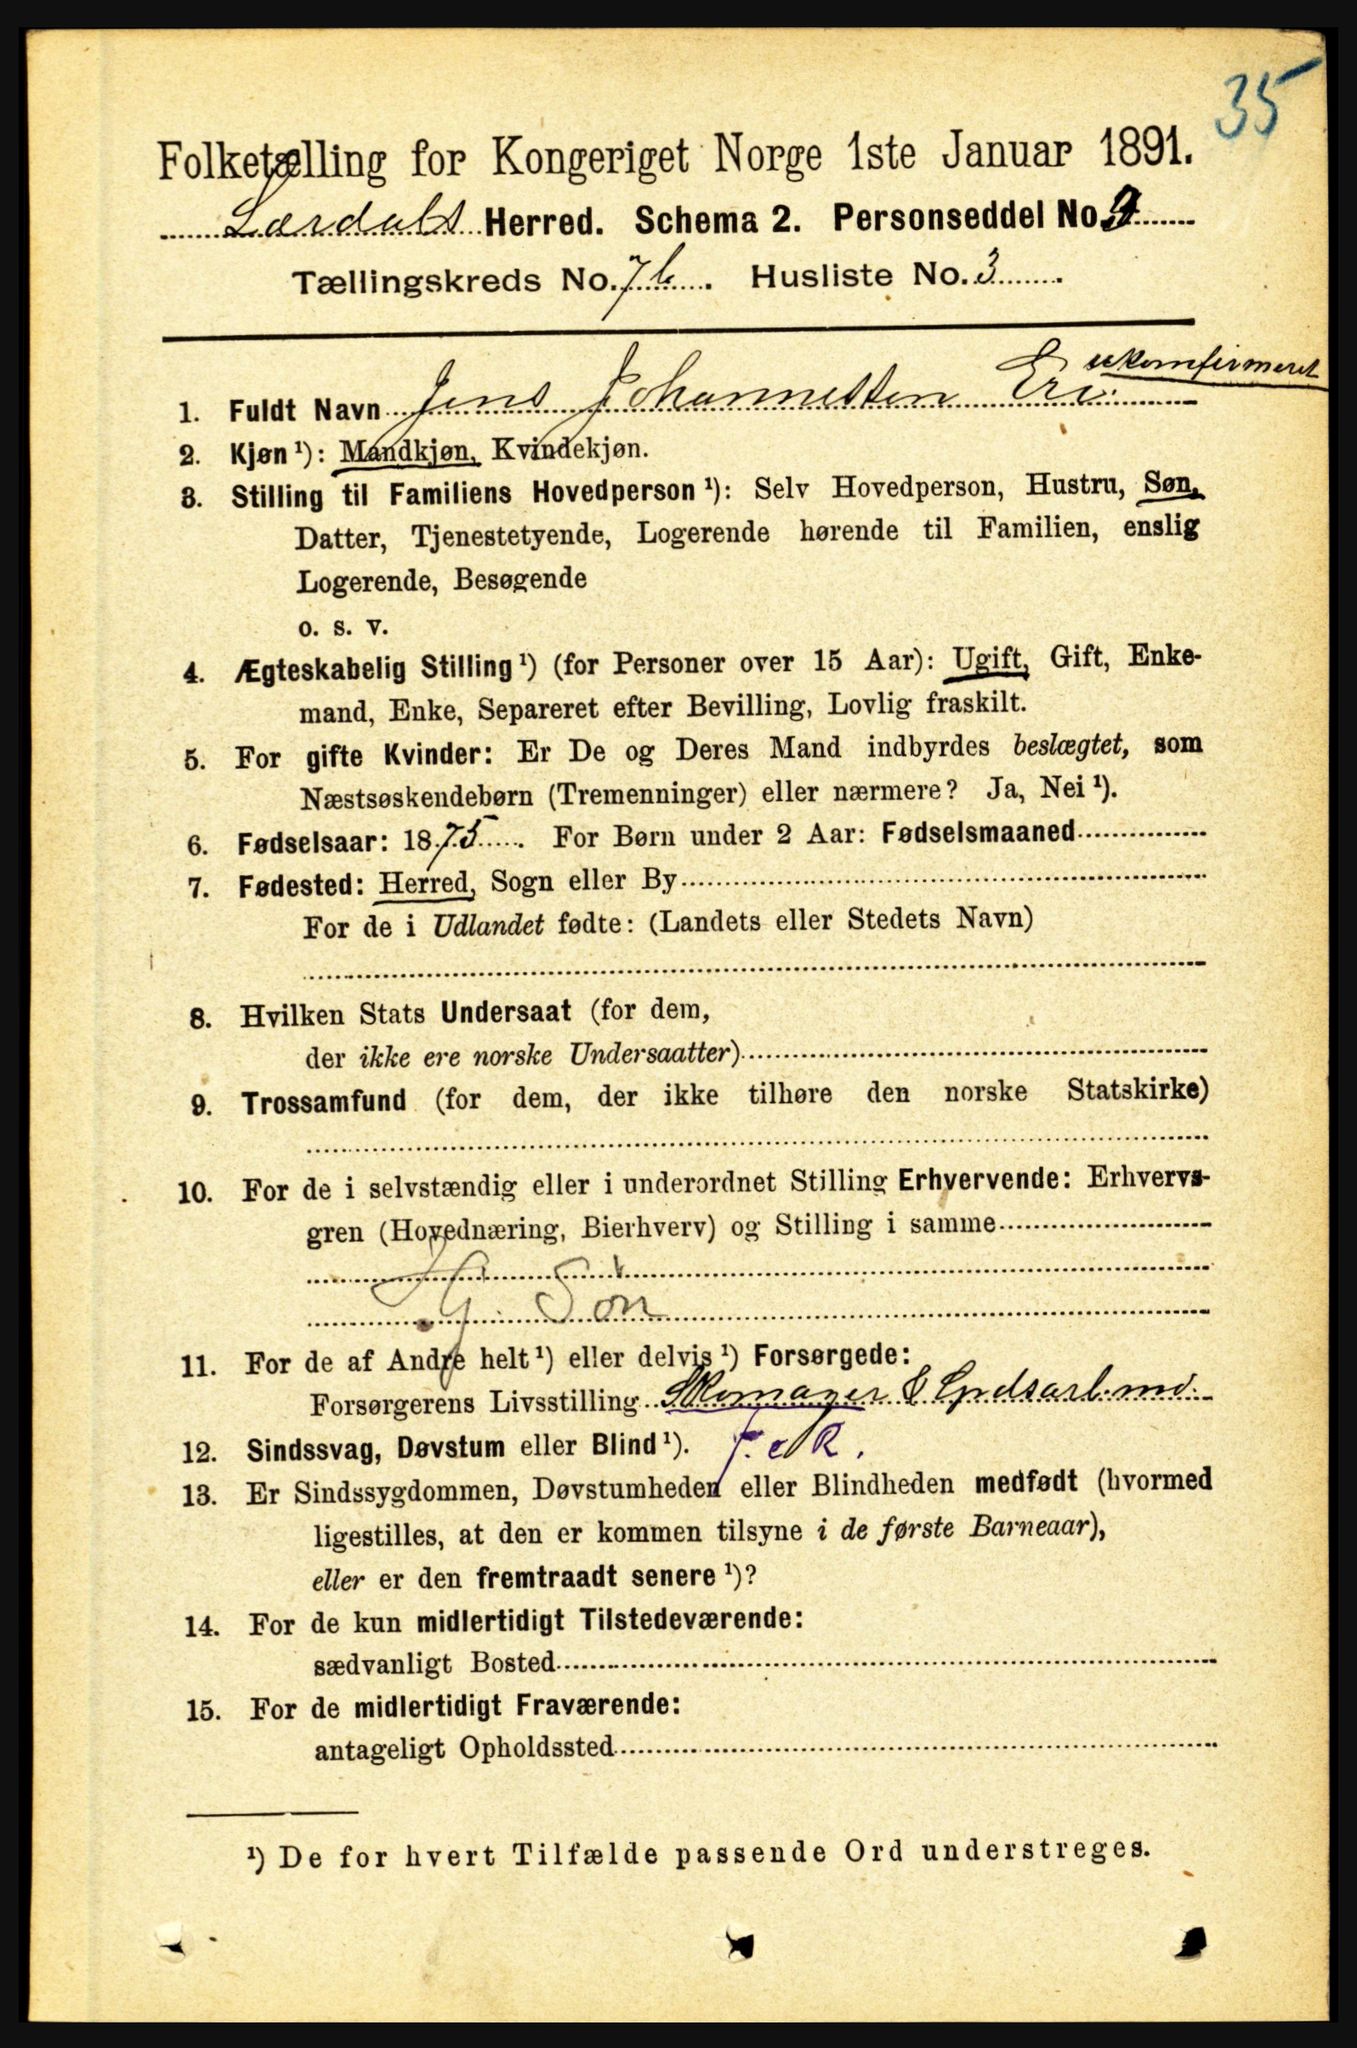 35
Folketælling for Kongeriget Norge 1ste Januar 1891.
Lærdals Herred. Schema 2. Personseddel No. 9
Tællingskreds No. 7b. Husliste No. 3.
ukomfirmeret
1. Fuldt Navn Jens Johannessen Eri.
2. Kjøn¹): Mandkjøn, Kvindekjøn.
3. Stilling til Familiens Hovedperson¹): Selv Hovedperson, Hustru, Søn,
Datter, Tjenestetyende, Logerende hørende til Familien, enslig
Logerende, Besøgende
o. s. v.
4. Ægteskabelig Stilling¹) (for Personer over 15 Aar): Ugift, Gift, Enke-
mand, Enke, Separeret efter Bevilling, Lovlig fraskilt.
5. For gifte Kvinder: Er De og Deres Mand indbyrdes beslægtet, som
Næstsøskendebørn (Tremenninger) eller nærmere? Ja, Nei¹).
6. Fødselsaar: 1875. For Børn under 2 Aar: Fødselsmaaned
7. Fødested: Herred, Sogn eller By
For de i Udlandet fødte: (Landets eller Stedets Navn)
8. Hvilken Stats Undersaat (for dem,
der ikke ere norske Undersaatter)
9. Trossamfund (for dem, der ikke tilhøre den norske Statskirke)
10. For de i selvstændig eller i underordnet Stilling Erhvervende: Erhvervs-
gren (Hovednæring, Bierhverv) og Stilling i samme
Søn
11. For de af Andre helt¹) eller delvis¹) Forsørgede:
Forsørgerens Livsstilling Skomager &
12. Sindssvag, Døvstum eller Blind¹).
13. Er Sindssygdommen, Døvstumheden eller Blindheden medfødt (hvormed
ligestilles, at den er kommen tilsyne i de første Barneaar),
eller er den fremtraadt senere¹)?
14. For de kun midlertidigt Tilstedeværende:
sædvanligt Bosted
15. For de midlertidigt Fraværende:
antageligt Opholdssted
¹) De for hvert Tilfælde passende Ord understreges.